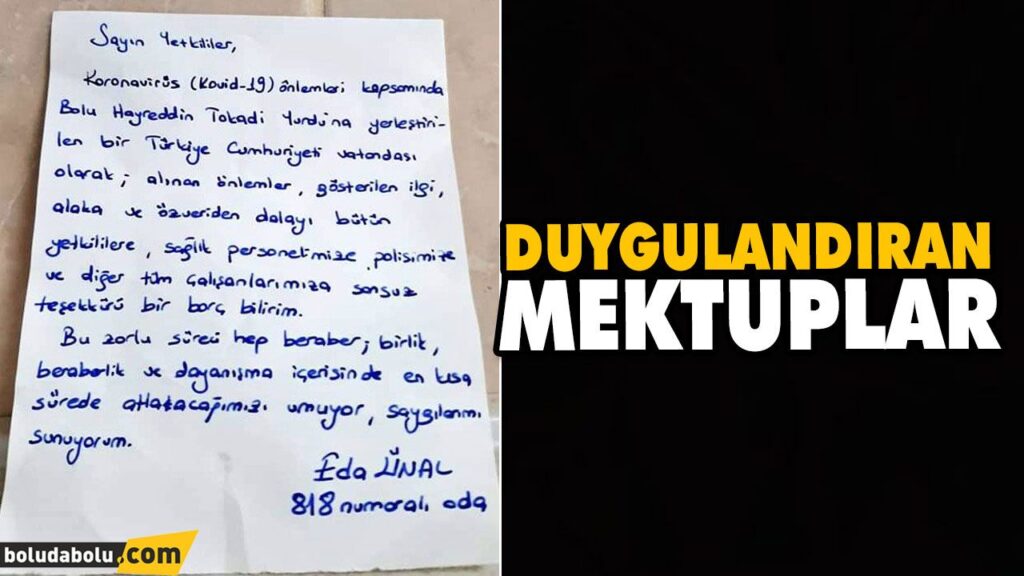 Sayın Yetkililer,
Koronavirüs (Kovid-19) önlemleri kapsamında
Bolu Hayreddin Tokadi Yurdu'na yerleştiri-
len bir Türkiye Cumhuriyeti vatandaşı
olarak; alınan önlemler, gösterilen ilgi,
alaka ve özveriden dolayı bütün
yetkililere, sağlık personelimize, polisimize
ve diğer tüm çalışanlarımıza sonsuz
teşekkürü bir borç bilirim.
Bu zorlu süreci hep beraber; birlik,
beraberlik ve dayanışma içerisinde en kısa
sürede atlatacağımızı umuyor, saygılarımı
sunuyorum.
Eda ÜNAL
818 numaralı oda
boludabolu.com
DUYGULANDIRAN
MEKTUPLAR